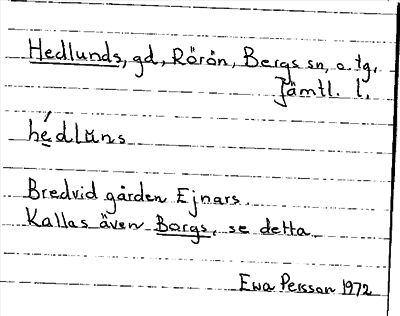 Hedlunds, gd, Rörön, Bergs sn, o. tg,
Jämtl. l.
hédlŭns
Bredvid gården Ejnars.
Kallas även Borgs, se detta.
Ewa Persson 1972